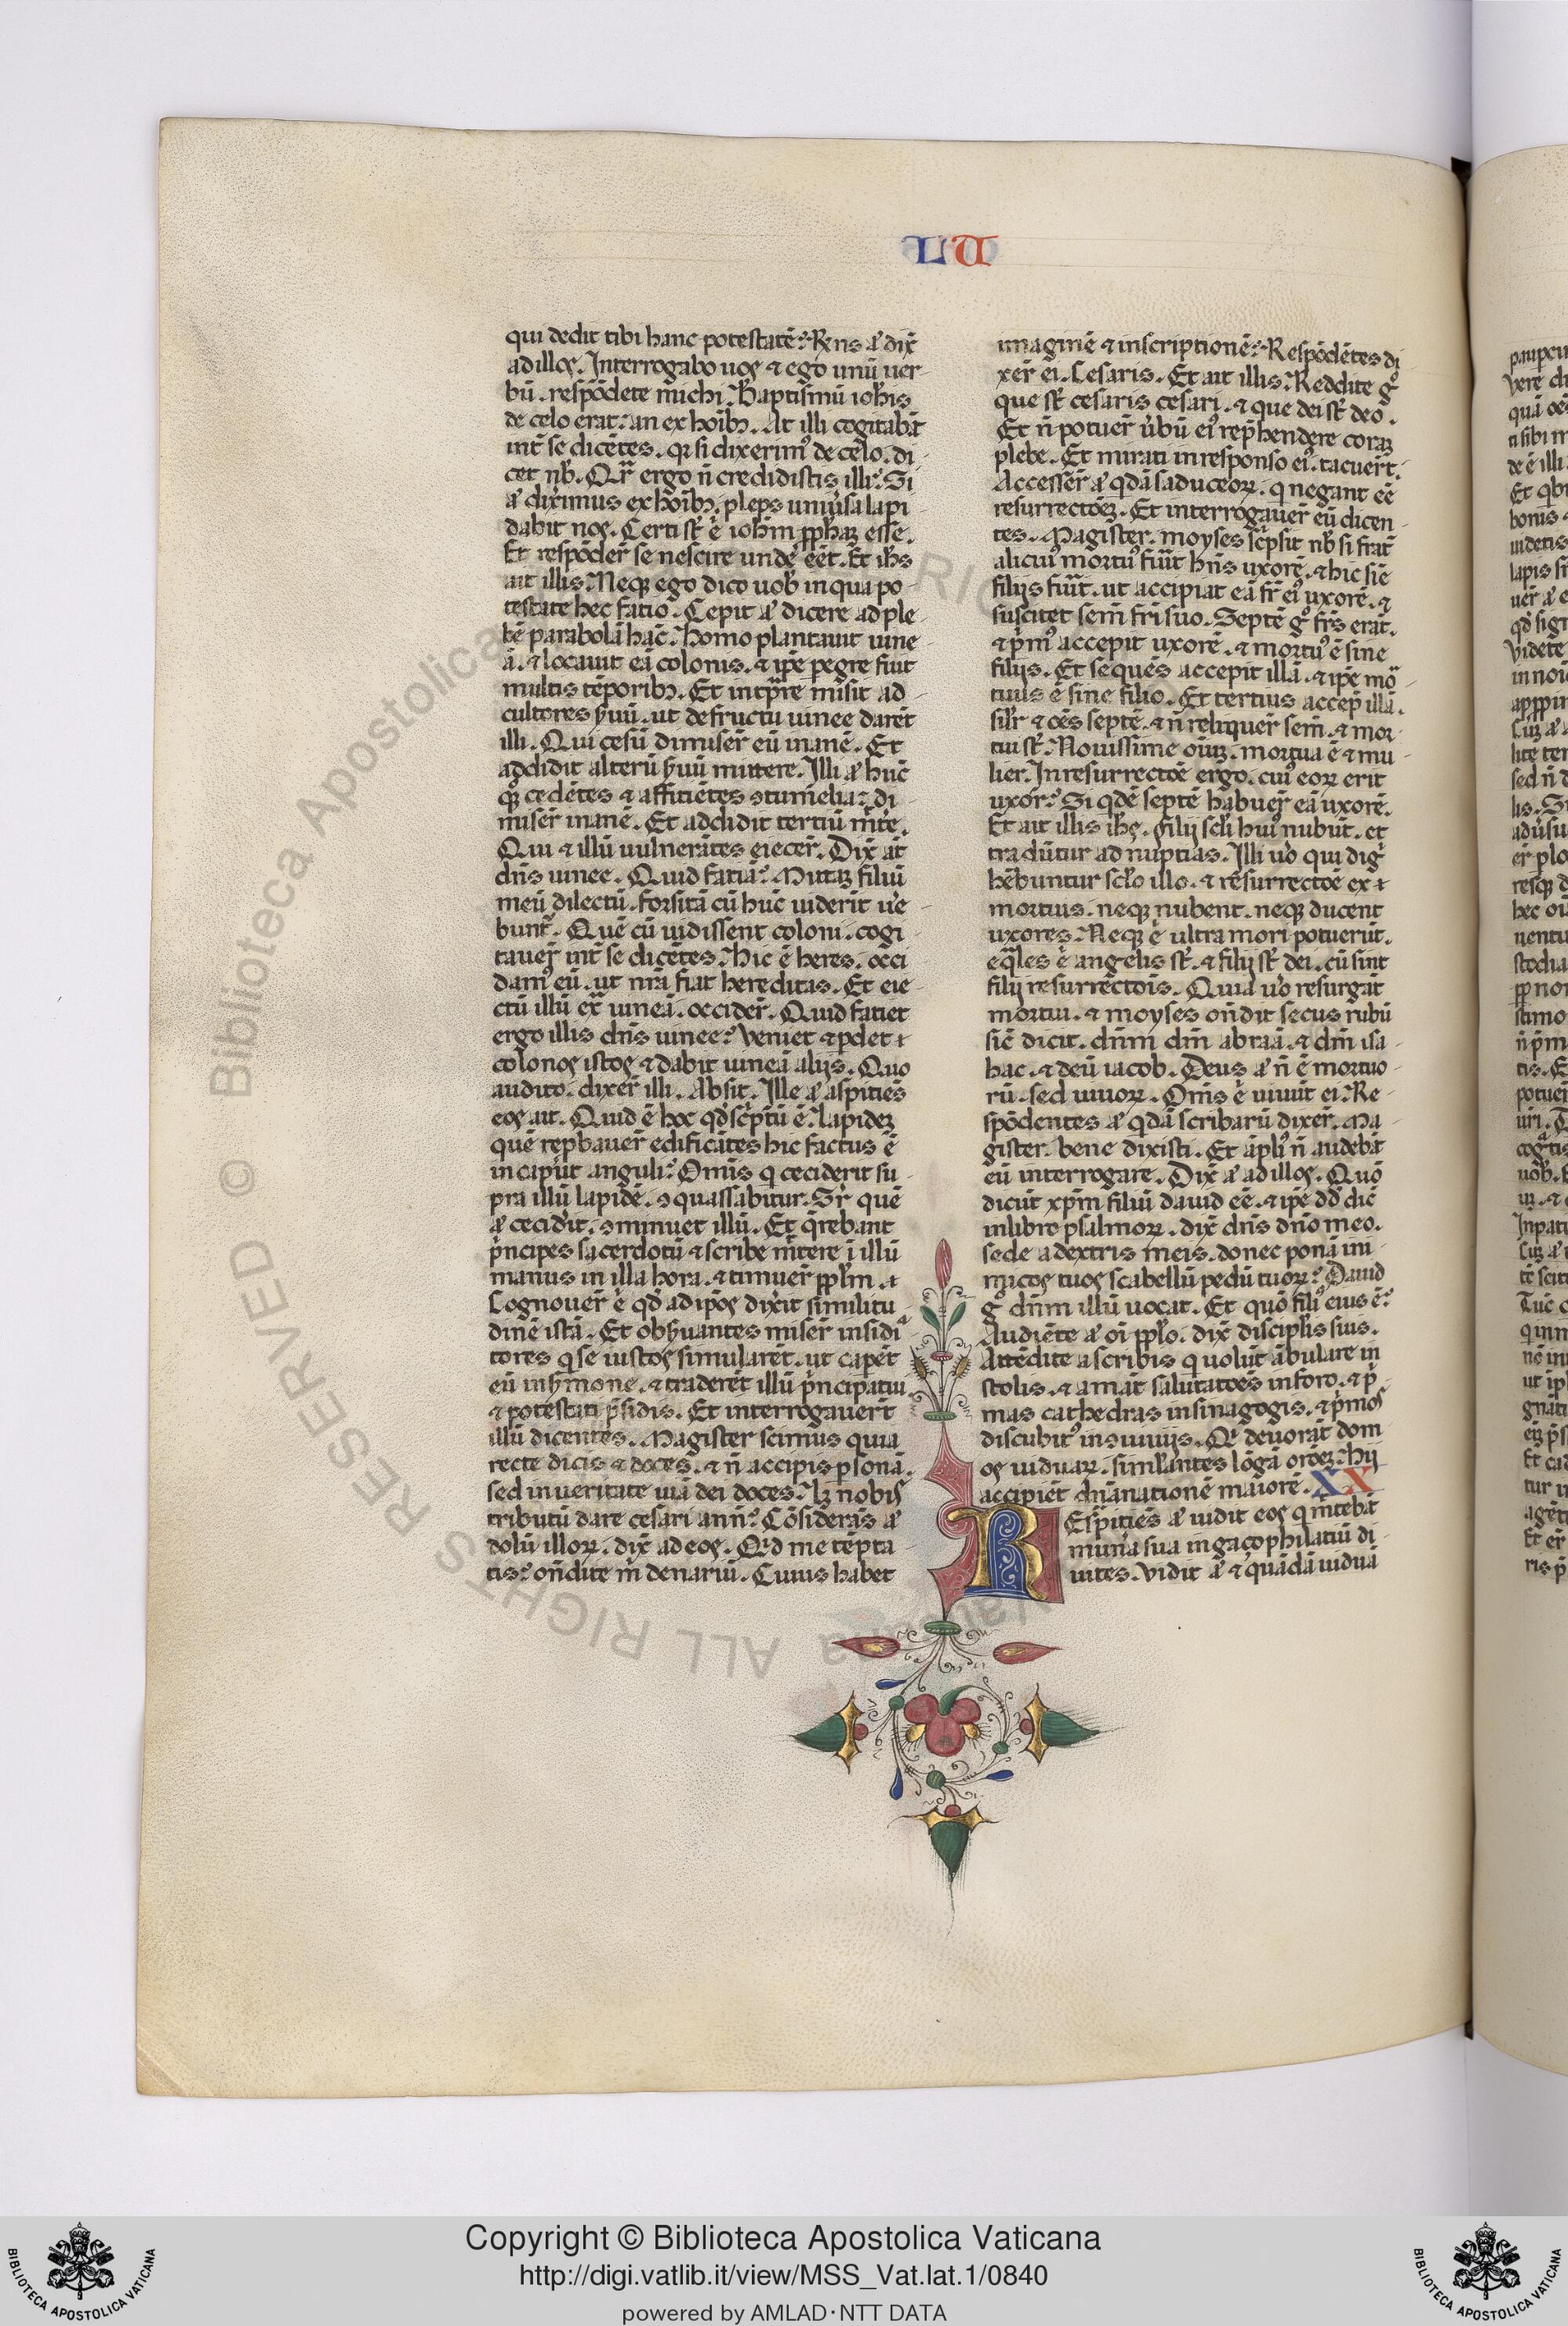 LU
qui dedit tibi hanc potestatē? Rn̄s aͤ dix̄
ad illos. Interrogabo uos ⁊ ego unū uer
bū. respōdete michi. Baptismū ioh̄is
de celo erat: an ex hoīb⁊. At illi cogitabāt
int̄ se dicētes. qꝛ si dixerimꝰ de celo. di
cet nb̄. Qr̄ ergo n̄ credidistis illi? Si
aͤ dixim̄us ex hoīb⁊. pleps uniūsa lapi
dabit nos. Certi st̄ .n. ioh̄m ꝓph̄aꝫ esse.
Et respōder̄ se nescire unde eēt. Et ih̄s
ait illis. Neqꝫ ego dico uob̄ in qua po
testate hec fatio. Cepit aͤ dicere ad ple
bē parabolā hāc. Homo plantauit uine
ā. ⁊ locauit eā colonis. ⁊ ip̄e pegre fuit
multis tēporib⁊. Et in tp̄re misit ad
cultores s̄uū. ut de fructu uinee darēt
illi. Qui cesū dimiser̄ eū inanē. Et
addidit alterū s̄uū mittere. Illi aͤ hūc
qꝫ cedētes ⁊ affitiētes ꝯtum̄elia: di
miser̄ inanē. Et addidit tertiū mīte.
Qui ⁊ illū uulnerātes eiecer̄. Dix̄ āt
dn̄s uinee. Quid fatiā? Mitaꝫ filiū
meū dilectū. forsitā cū hūc uiderīt ue
bunt̄. Quē cū uidissent coloni. cogi
tauer̄ int̄ se dicētes. Hic ē heres. occi
damꝰ eū. ut nr̄a fiat hereditas. Et eie
ctū illū ex̄ uineā. occider̄. Quid fatiet
ergo illis dn̄s uinee? Veniet ⁊ ꝑdet
colonos istos ⁊ dabit uineā alijs. Quo
audito. dixer̄ illi. Absit. Ille aͤ aspitiēs
eos ait. Quid ē hoc qd̄ sc̄ptū ē. Lapideꝫ
quē rep̄bauer̄ edificātes hic factus ē
in caput anguli? Om̄is q̄ ceciderit su
pra illū lapidē. ꝯquassabitur. Sr̄ quē
aͤ cecid̄it. ꝯminuet illū. Et q̄rebant
p̄ncipes sacerdotū ⁊ scribe mīt̄ere ī illū
manus in illa hora. ⁊ timuer̄ ppl̄m.
Cognouer̄ .n. qd̄ ad ip̄os dix̄it similitu
dinē istā. Et obs̄uantes miser̄ insidia
tores q̄ se iustos simularēt. ut capēt
eū in s̄mone. ⁊ traderēt illū p̄ncipatui
⁊ potestati p̄sidis. Et interrogauer̄t
illū dicentes. Magister scimus quia
recte dicis ⁊ doces. ⁊ n̄ accipis ꝑsonā.
sed in ueritate uiā dei doces. Lꝫ nobis
tributū dare cesari an n̄? Cōsiderās aͤ
dolū illoꝝ. dix̄ ad eos. Qd̄ me tēpta
tis? on̄dite m̄ denariū. Cuius habet
imaginē ⁊ inscriptionē? Respōdētes di
xer̄ ei. Cesaris. Et ait illis. Reddite gͦ
que st̄ cesaris cesari. ⁊ que dei st̄ deo.
Et n̄ potuer̄ ūbū eiꝰ rep̄hendere coraꝫ
plebe. Et mirati in responso eiꝰ. tacuer̄t.
Accesser̄ aͤ qdā saduceoꝝ. q̄ negant eē
resurrectōeꝫ. Et interrogauer̄ eū dicen
tes. Magister. moyses sc̄psit nb̄ si frat̄
alicuiꝰ mortuꝰ fūit hn̄s uxorē. ⁊ hic sīe
filijs fūit. ut accipiat eā fr̄ eiꝰ uxorē. ⁊
suscitet sem̄ fr̄i suo. Septē gͦ fr̄s erāt.
⁊ p̄mꝰ accepit uxorē. ⁊ mortuꝰ ē sine
filijs. Et sequēs accepit illā. ⁊ ip̄e mor
tuus ē sine filio. Et tertius accep̄ illā.
silr̄ ⁊ oēs septē. ⁊ n̄ reliquer̄ sem̄. ⁊ mor
tui st̄. Nouissime oīuꝫ. mortua ē ⁊ mu
lier. In resurrectoē ergo. cuiꝰ eoꝝ erit
uxor? Si qdē septē habuer̄ eā uxorē.
Et ait illis ih̄s. filij scl̄i huiꝰ nubūt. et
tradūtur ad nuptias. Illi uͦo qui dig
hēbuntur scl̄o illo. ⁊ resurrectoē ex
mortuis. neqꝫ nubent. neqꝫ ducent
uxores. Neqꝫ .n. ultra mori potuerūt.
eq̄les .n. angelis st̄. ⁊ filij st̄ dei. cū sint
filij resurrectōis. Quia uͦo resurgāt
mortui. ⁊ moyses on̄dit secus rubū
sic̄ dicit. dn̄m dm̄ abraā. ⁊ dm̄ isa
hac. ⁊ deū iacob. Deus aͤ n̄ ē mortuo
rū. sed uiuoꝝ. Om̄s .n. uiuūt ei. Re
spōdentes aͤ qdā scribarū dixer̄. Ma
gister. bene dixisti. Et āpliꝰ n̄ audebāt
eū interrogare. Dix̄ aͤ ad illos. Quō
dicūt xp̄m filiū dauid eē. ⁊ ip̄e dd̄ dic̄
in libro psalmoꝝ. dix̄ dn̄s dn̄o meo.
sede a dextris meis. donec ponā ini
micos tuos scabellū pedū tuoꝝ? Dauid
gͦ dn̄m illū uocat. Et quō filiꝰ eius ē?
Audiēte aͤ oī ppl̄o. dix̄ discipl̄is suis.
Attēdite a scribis q̄ uolūt ābulare in
stolis. ⁊ amāt salutatoēs in foro. ⁊ p̄
mas cathedras in sinagogis. ⁊ p̄mos
discubitꝰ in ꝯuiuijs. Qͥ deuorāt dom
os uiduaꝝ. simul̄antes lōgā oroēꝫ. Hij
accipiēt dānationē maiorē. XX
REspitiēs aͤ uidit eos q̄ mitebāt
munera sua in gaçophilatiū di
uites. Vidit aͤ ⁊ quādā uiduā
Copyright © Biblioteca Apostolica Vaticana
http://digi.vatlib.it/view/MSS_Vat.lat.1/0840
powered by AMLAD·NTT DATA
BIBLIOTECA APOSTOLICA VATICANA
BIBLIOTECA APOSTOLICA VATICANA